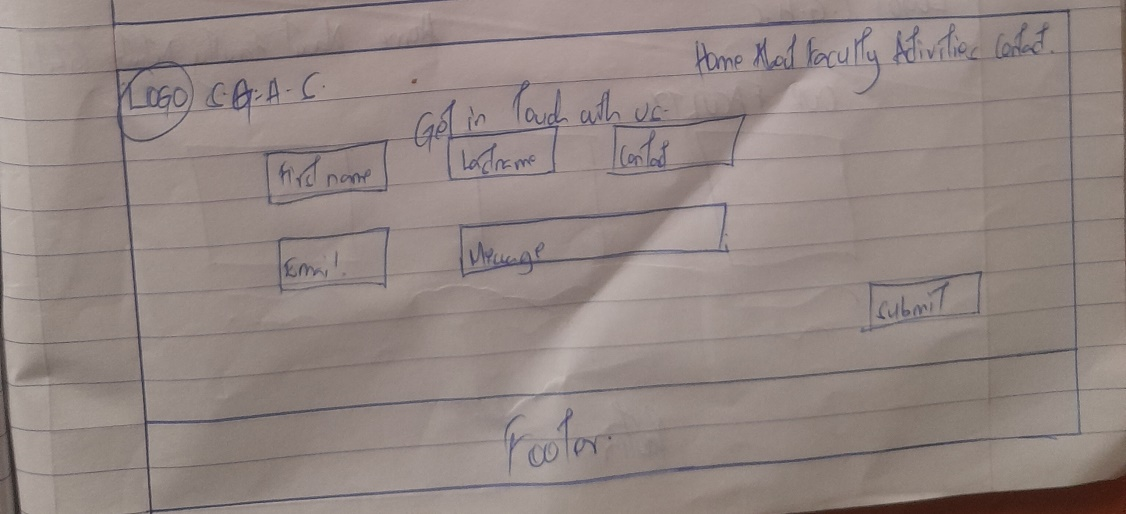 LOGO S.G.A.C.
Home About Faculty Activities Contact.
Get in Touch with us.
First name Lastname Contact
Email. Message
Submit
Footer.